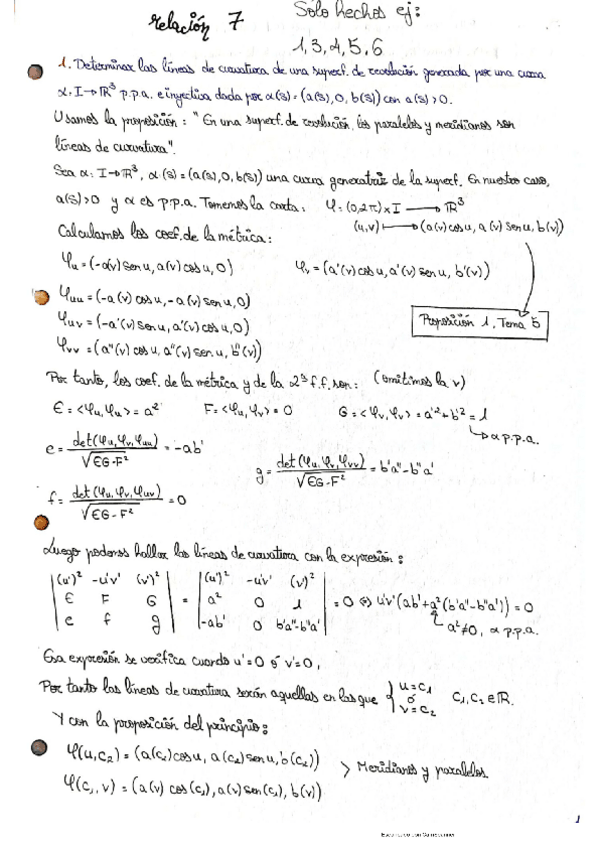 relación 7
Sólo hechos ej:
1, 3, 4, 5, 6
1. Determinar las líneas de curvatura de una superf. de revolución generada por una curva
α: I → ℝ³ p.p.a. e inyectiva dada por α(s) = (a(s), 0, b(s)) con a(s) > 0.
Usamos la proposición: "En una superf. de revolución, los paralelos y meridianos son
líneas de curvatura".
Sea α: I → ℝ³, α(s) = (a(s), 0, b(s)) una curva generatriz de la superf. En nuestro caso,
a(s) > 0 y α es p.p.a. Tomemos la carta: φ = (0, 2π) × I → ℝ³
(u,v) ↦ (a(v) cos u, a(v) sen u, b(v))
Calculamos los coef. de la métrica:
φu = (-a(v) sen u, a(v) cos u, 0) φv = (a'(v) cos u, a'(v) sen u, b'(v))
φuu = (-a(v) cos u, -a(v) sen u, 0)
φuv = (-a'(v) sen u, a'(v) cos u, 0)
Proposición 1, Tema 5
φvv = (a''(v) cos u, a''(v) sen u, b''(v))
Por tanto, los coef. de la métrica y de la 2ª f.f. son: (omitimos la v)
E = <φu, φu> = a² F = <φu, φv> = 0 G = <φv, φv> = a'² + b'² = 1
↳ α p.p.a.
e = det(φu, φv, φuu) / √(EG-F²) = -ab'
g = det(φu, φv, φvv) / √(EG-F²) = b'a''-b''a'
f = det(φu, φv, φuv) / √(EG-F²) = 0
Luego podemos hallar las líneas de curvatura con la expresión:
| (u')² -u'v' (v')² | | (u')² -u'v' (v')² |
| E F G | = | a² 0 1 | = 0 ⇔ u'v'(ab' + a²(b'a''-b''a')) = 0
| e f g | | -ab' 0 b'a''-b''a' | a² ≠ 0, α p.p.a.
Esa expresión se verifica cuando u' = 0 ó v' = 0,
Por tanto las líneas de curvatura serán aquellas en las que { u = c₁ ó v = c₂ c₁, c₂ ∈ ℝ.
Y con la proposición del principio:
φ(u, c₂) = (a(c₂) cos u, a(c₂) sen u, b(c₂))
> Meridianos y paralelos.
φ(c₁, v) = (a(v) cos(c₁), a(v) sen(c₁), b(v))
1
Escaneado con CamScanner